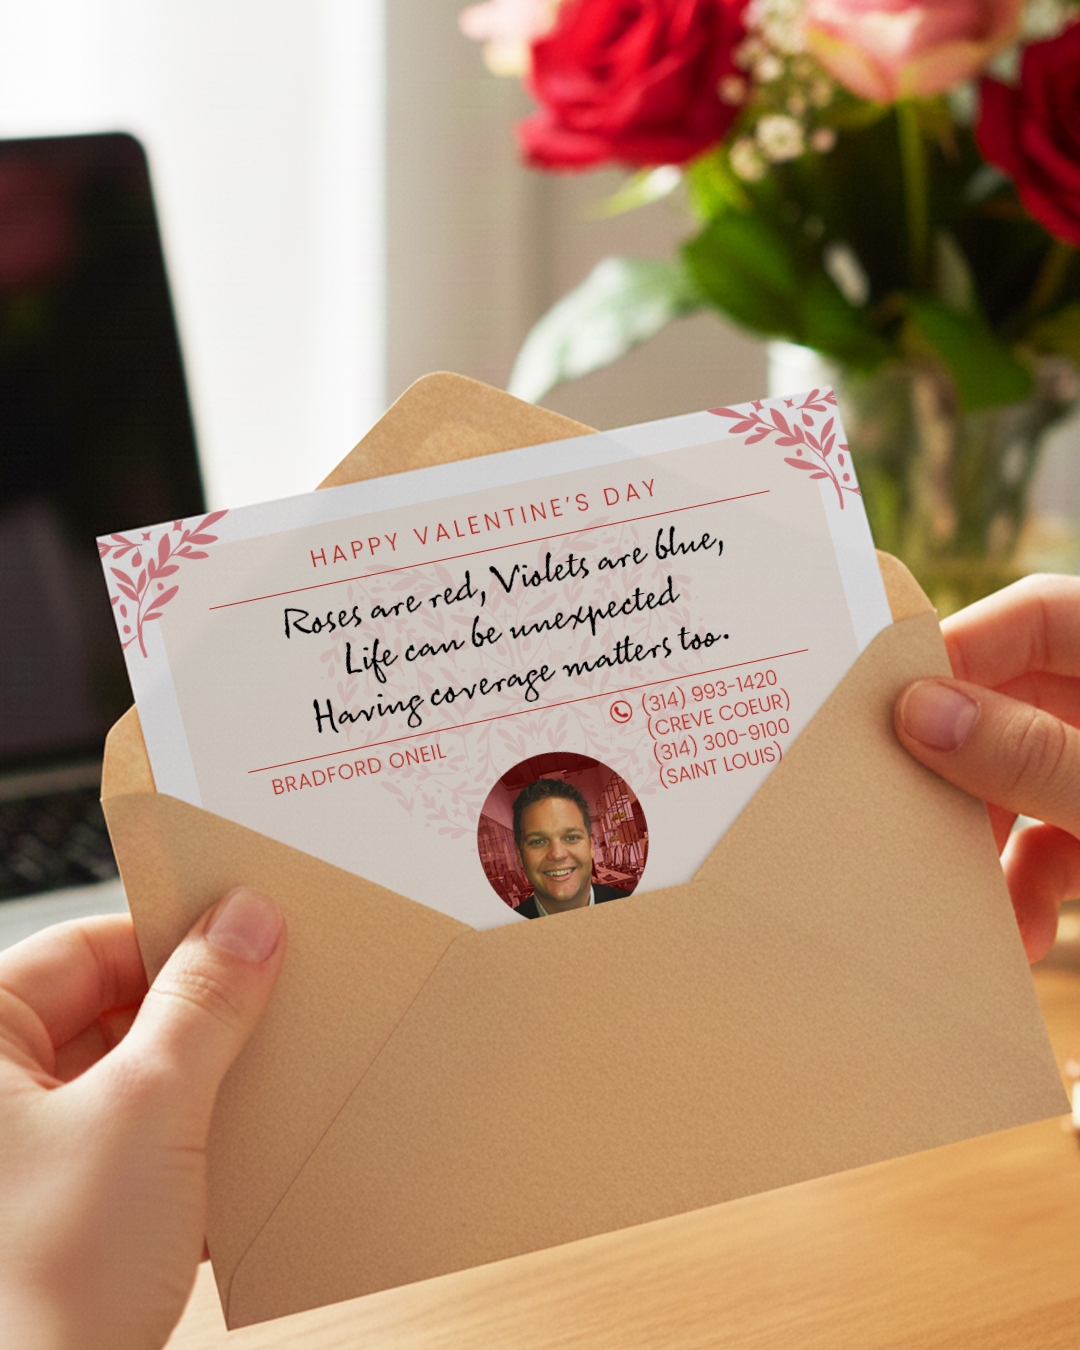 HAPPY VALENTINE'S DAY
Roses are red, Violets are blue,
Life can be unexpected
Having coverage matters too.
BRADFORD ONEIL
(314) 993-1420
(CREVE COEUR)
(314) 300-9100
(SAINT LOUIS)